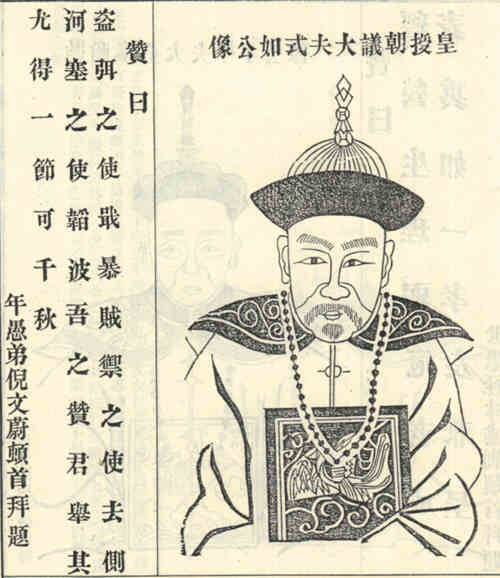 皇授朝議大夫式如公像
贊曰
盜弭之使戢暴賊禦之使去側
河塞之使韜波吾之贊君舉其
尤得一節可千秋
年愚弟倪文蔚頓首拜題